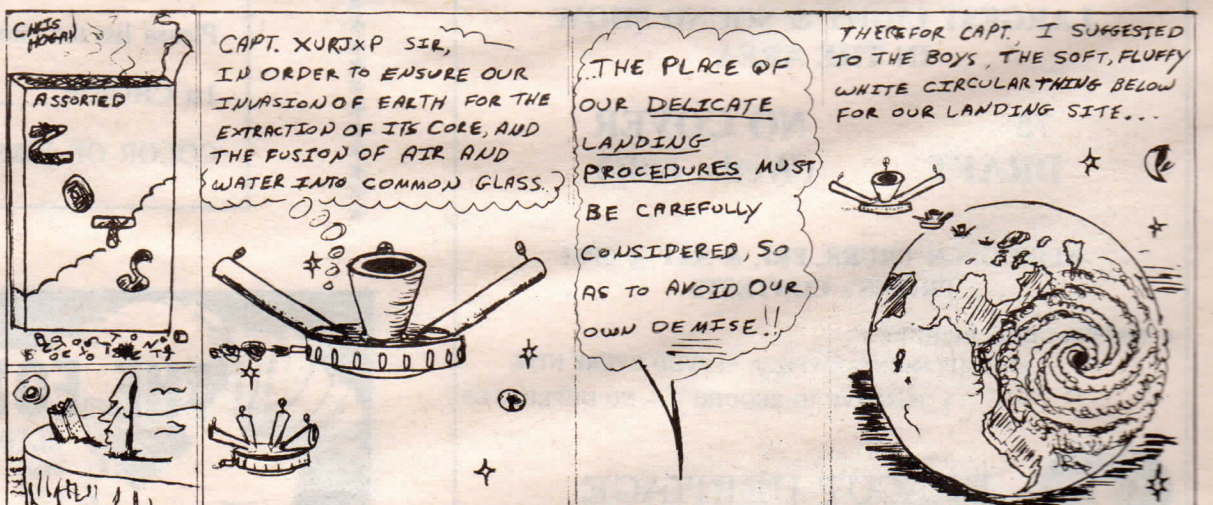 CHRIS
HOGAN
ASSORTED
Z
O
T
S
CAPT. XURJXP SIR,
IN ORDER TO ENSURE OUR
INVASION OF EARTH FOR THE
EXTRACTION OF ITS CORE, AND
THE FUSION OF AIR AND
WATER INTO COMMON GLASS.
THE PLACE OF
OUR DELICATE
LANDING
PROCEDURES MUST
BE CAREFULLY
CONSIDERED, SO
AS TO AVOID OUR
OWN DEMISE!!
THEREFOR CAPT. I SUGGESTED
TO THE BOYS, THE SOFT, FLUFFY
WHITE CIRCULAR THING BELOW
FOR OUR LANDING SITE...